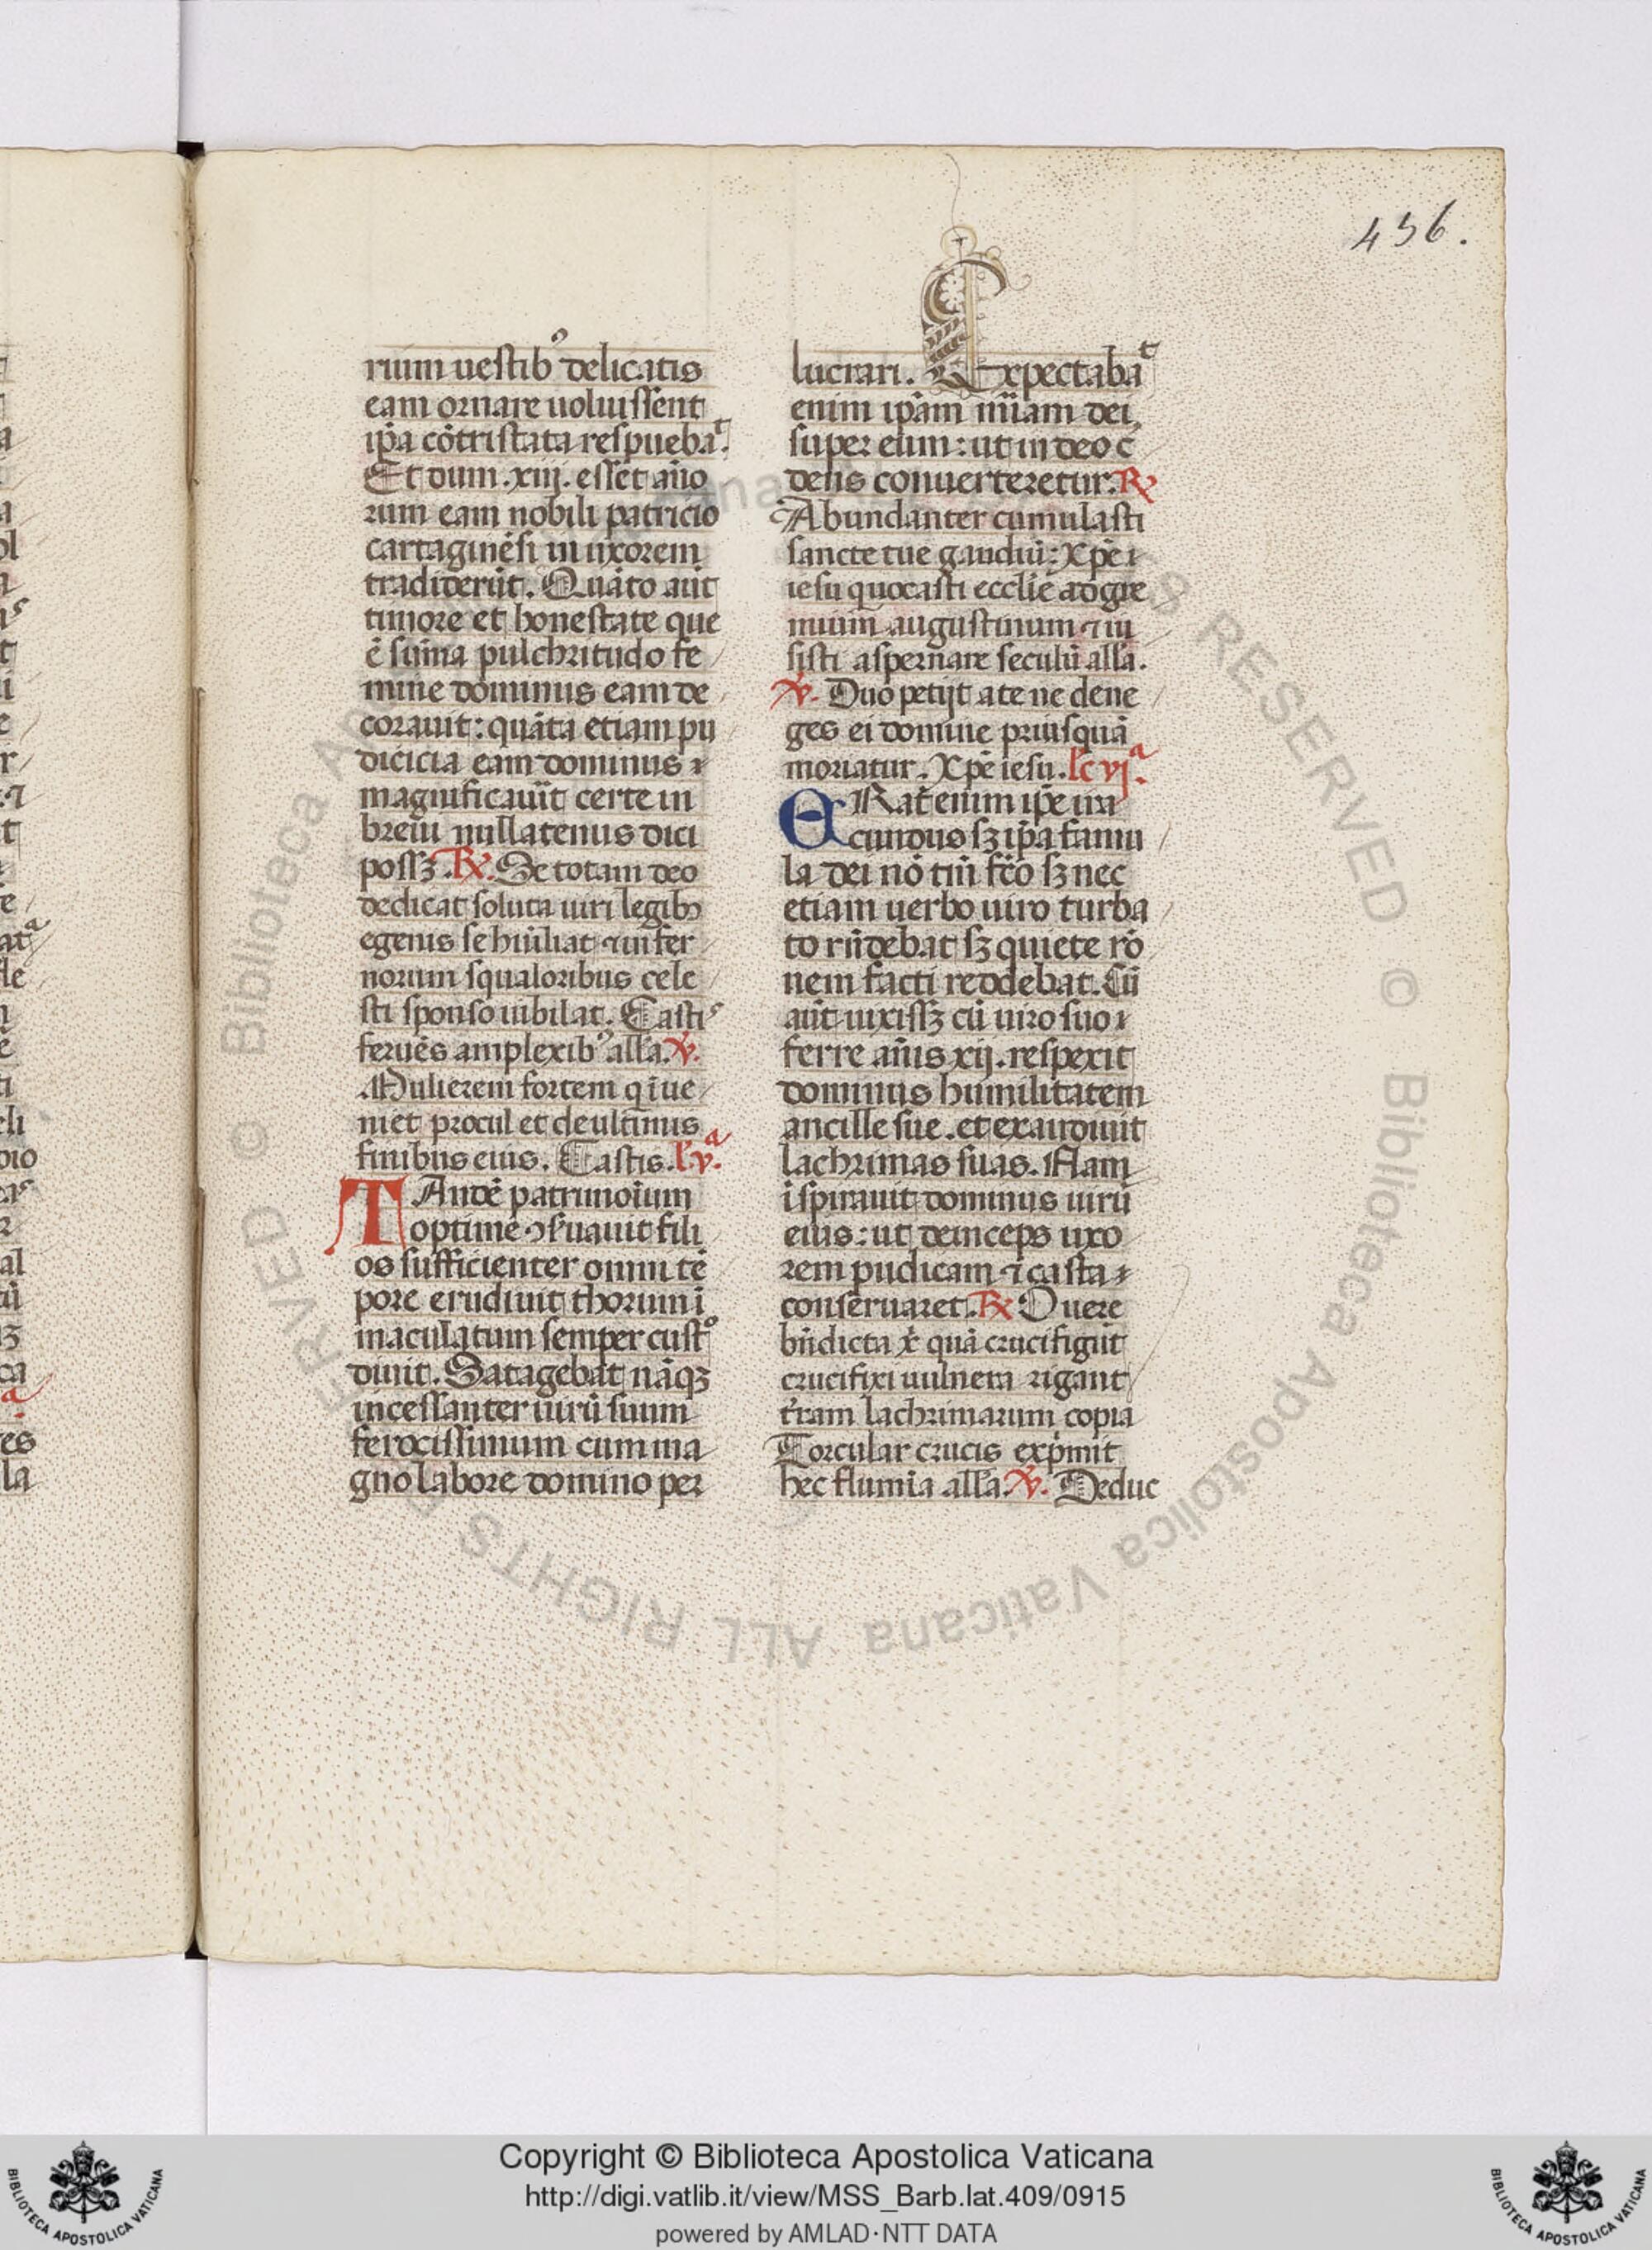 456.
rium uestibꝰ delicatis
eam ornare uoluissent
ip̃a cõtristata respuebaᵗ.
Et dum .xiij. esset ãno
rum eam nobili patricio
cartaginẽsi in uxorem
tradiderũt. Quãto aũt
timore et honestate que
ẽ sum̃a pulchritudo fe
mine dominus eam de
corauit: quãta etiam pu
dicicia eam dominus
magnificauit certe in
breui nullatenus dici
possꝫ. ℟. Se totam deo
dedicat soluta uiri legibꝫ
egenis se huĩliat ⁊ infer
norum squaloribus cele
sti sponso iubilat. Castiˢ
feruẽs amplexibꝰ all̃a. ℣.
Mulierem fortem q̃ iue
niet procul et de ultimus
finibus eius. Castis. l̃. v.ᵃ
TAndẽ patrimoĩum
optime ꝯsuauit fili
os sufficienter omni tẽ
pore erudiuit thorum ĩ
maculatum semper custᵒ
diuit. Satagebat nãqꝫ
incessanter uirũ suum
ferocissimum cum ma
gno labore domino per
lucrari. Expectabaᵗ
enim ip̃am mĩam dei
super eum: ut in deo c̃
dens conuerteretur. ℟
Abundanter cumulasti
sancte tue gaudiũ: Xp̃e
iesu q̃ uocasti eccl̃ie ad gre
mium augustinum ⁊ iu
sisti aspernare seculũ all̃a.
℣. Duo petijt a te ne dene
ges ei domine priusquã
moriatur. Xp̃e iesu. lc̃ vj.ᵃ
ERat enim ip̃e ira
cundus sꝫ ip̃a famu
la dei nõ tm̃ fc̃o sꝫ nec
etiam uerbo uiro turba
to rñdebat sꝫ quiete rõ
nem facti reddebat. Cũ
aũt uixissꝫ cũ uiro suo
ferre ãnis xij. respexit
dominus humilitatem
ancille sue. et exaudiuit
lachrimas suas. Nam
ĩspirauit dominus uirũ
eius: ut deinceps uxo
rem pudicam ⁊ casta
conseruaret. ℟ O uere
bñdicta x̃ quã crucifigũt
crucifixi uulnera rigant
t̃ram lachrimarum copia
Torcular crucis exp̃mit
hec flumĩa all̃a. ℣. Deduc
Copyright © Biblioteca Apostolica Vaticana
http://digi.vatlib.it/view/MSS_Barb.lat.409/0915
powered by AMLAD·NTT DATA
BIBLIOTECA APOSTOLICA VATICANA
BIBLIOTECA APOSTOLICA VATICANA